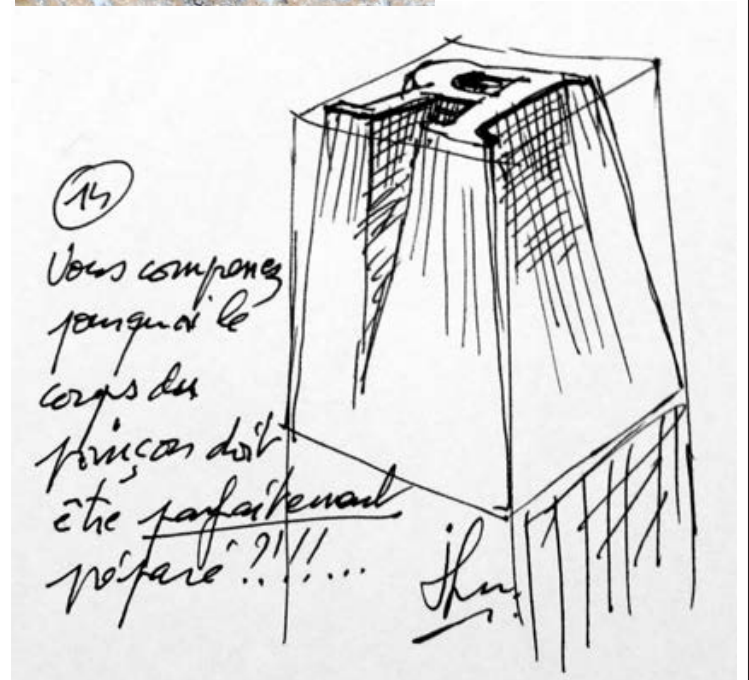 14
Vous comprenez
pourquoi le
corps du
poinçon doit
être parfaitement
préparé ?!!!...